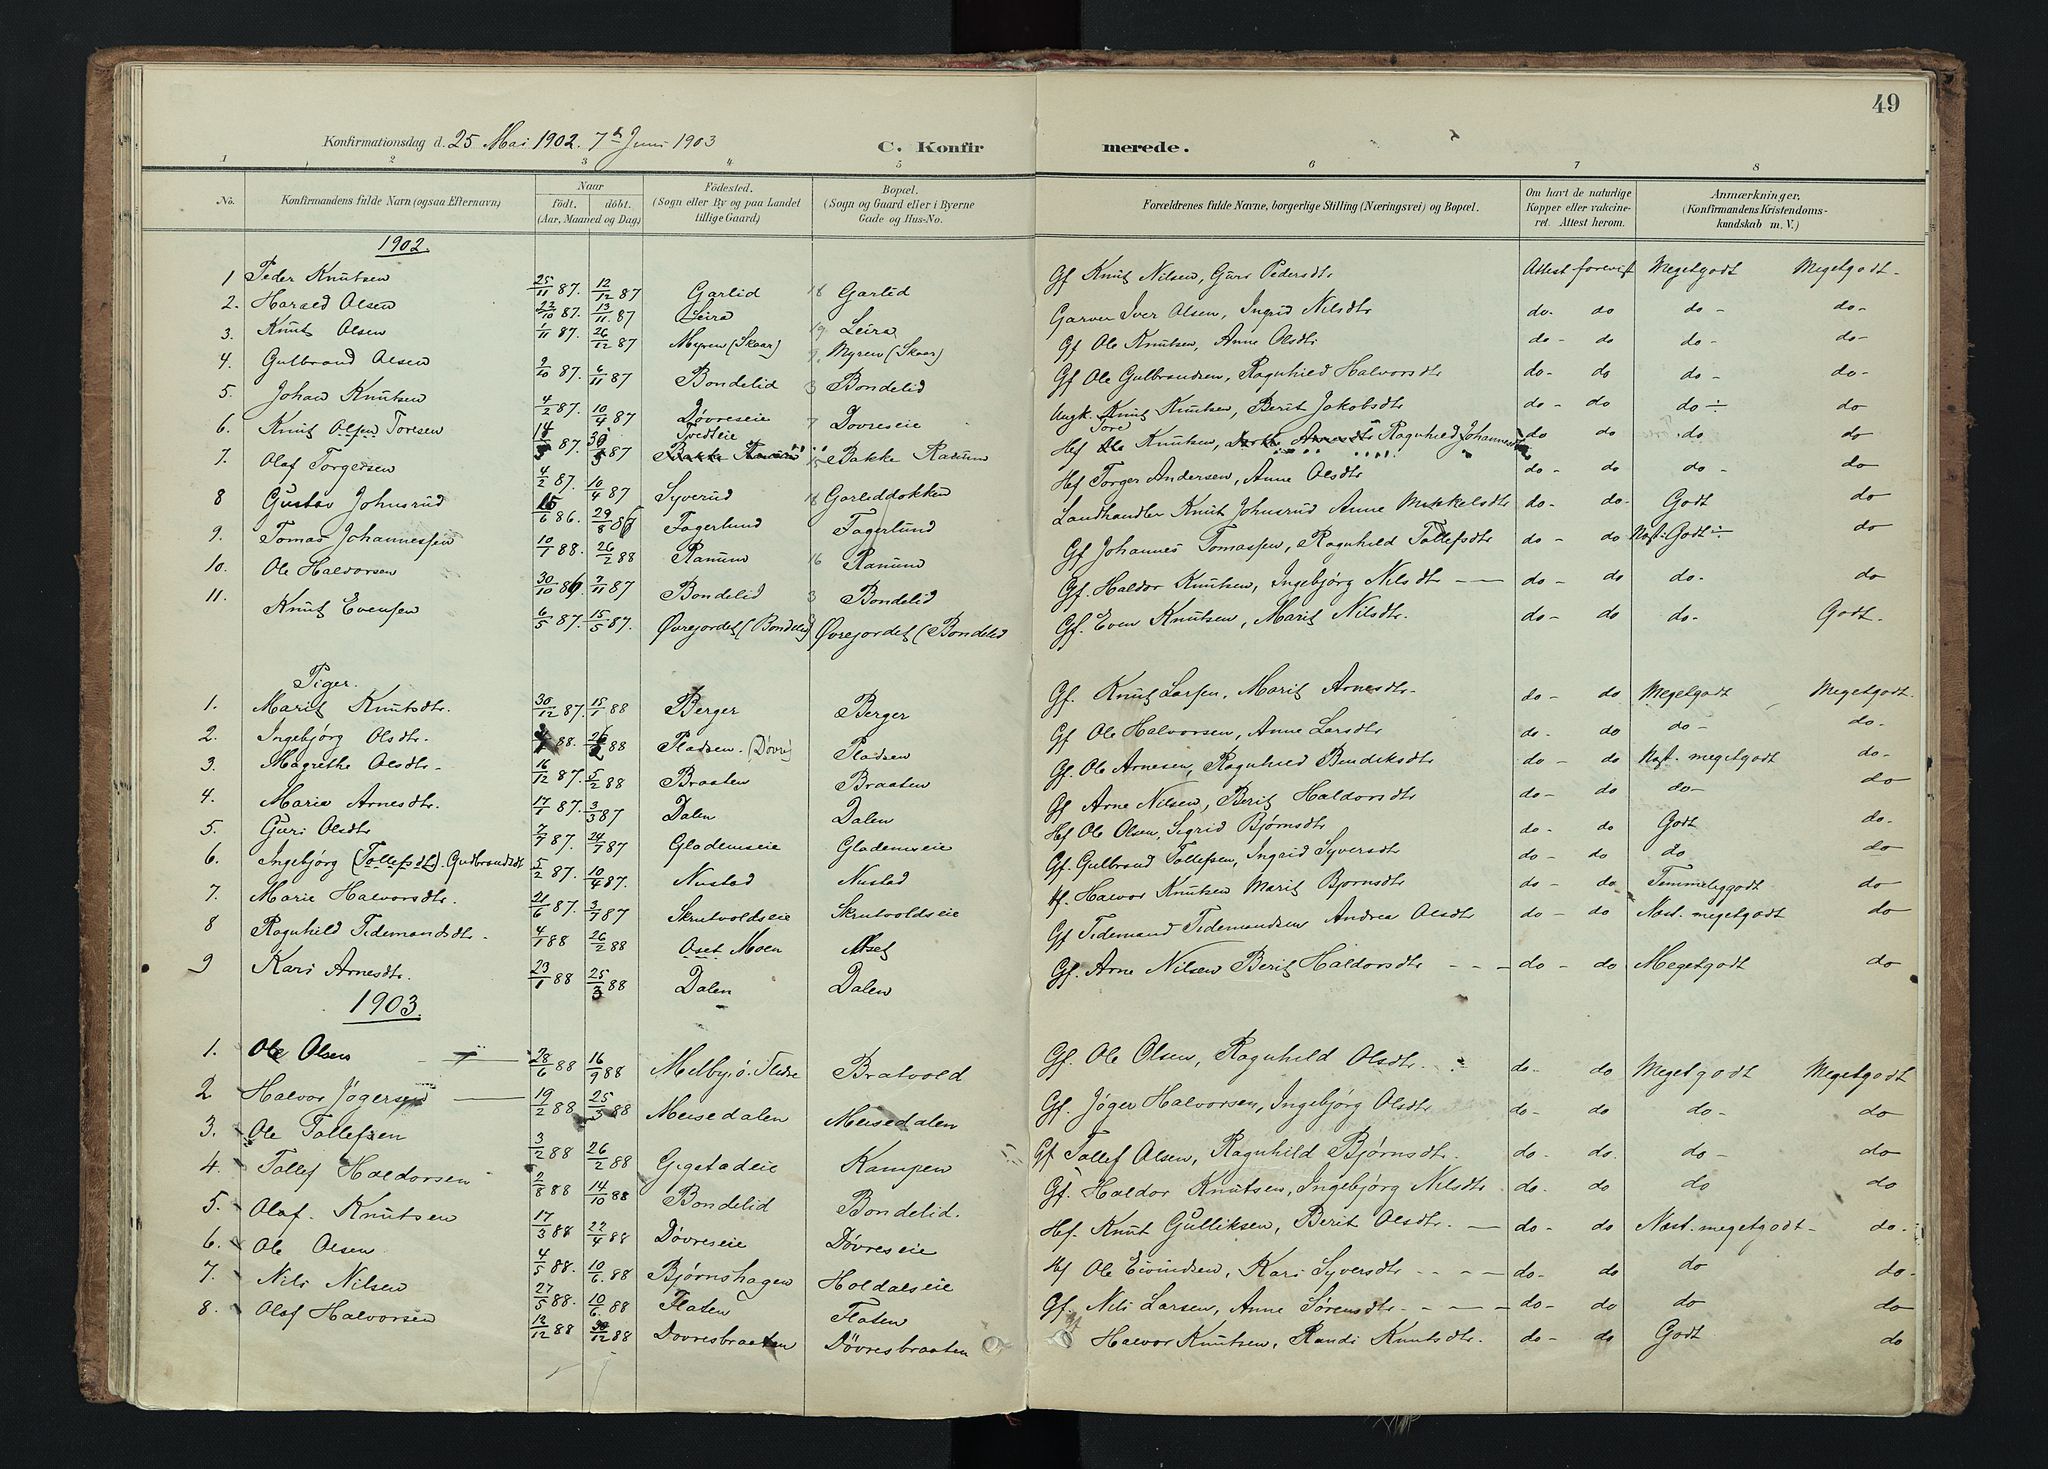 49
Konfirmationsdag d. 25 Mai 1902. 7de Juni 1903
C. Konfirmerede.
1 2 3 4 5 6 7 8
No. Konfirmandens fulde Navn (ogsaa Efternavn) Naar födt. döbt. (Aar, Maaned og Dag) Födested. (Sogn eller By og paa Landet tillige Gaard) Bopæl. (Sogn og Gaard eller i Byerne Gade og Hus-No. Forældrenes fulde Navne, borgerlige Stilling (Næringsvei) og Bopæl. Om havt de naturlige Kopper eller vakcineret. Attest herom. Anmærkninger. (Konfirmandens Kristendomskundskab m. V.)
1902.
1 Peder Knutsen 25/11 87. 12/12 87 Garlid 18 Garlid Gf Knut Nilsen, Guri Pedersdtr Attest forevist Megetgodt Megetgodt.
2. Harald Olsen 22/10 87. 13/11 87 Leira 19 Leira Garver Iver Olsen, Ingrid Nilsdtr do- do do - do-
3. Knut Olsen 1/11 87. 26/12 87 Myren (Skaar) 7. Myren (Skaar) Gf Ole Knutsen, Anne Olsdtr do- do do - do-
4. Gulbrand Olsen 9/10 87. 6/11 87 Bondelid 3 Bondelid Gf Ole Gulbrandsen, Ragnhild Halvorsdtr do- do do - do-
5. Johan Knutsen 4/2 87. 10/4 87 Døvreseie 7 Dovreseie Ungk. Knut Knutsen, Berit Jakobsdtr do- do do - do
6. Knut Olsen Toresen 14/ 87. 30/3 87 Tvedteie Bakke Ranum 15 Bakke Ranum Hf Tore Ole Knutsen, Ragnhild Johannesdtr do do do do
7. Olaf Torgersen 4/2 87. 10/4 87 Syverud 18 Garliddokken Hf Torger Andersen, Anne Olsdtr do- do do - do
8 Gustav Johnsrud 15/6 86. 29/8 86 Fagerlund Fagerlund Landhandler Knut Johnsrud Anne Mikkelsdtr do- do- Godt do
9. Tomas Johannessen 10/1 88. 26/2 88 Ranum 16 Ranum Gf Johannes Tomassen, Ragnhild Tollefsdtr do - do Nast. Godt do
10. Ole Halvorsen 30/10 86 7/11 87 Bondelid 3 Bondelid Gf. Haldor Knutsen, Ingebjørg Nilsdtr do- do do- do
11. Knut Evensen 6/5 87. 15/5 87. Øvrejordet (Bondelid) Øvrejordet (Bondelid Gf. Even Knutsen, Marit Nilsdtr. do- do do- Godt.
Piger.
1. Marit Knutsdtr. 30/12 87. 15/1 88 Berger Berger Gf. Knut Larsen, Marit Arnesdtr- do- do Megetgodt Megetgodt.
2. Ingebjørg Olsdtr. 88. 26/2 88 Pladsen. (Døvre) Pladsen Gf Ole Halvorsen, Anne Larsdtr do- do do - do-
3. Magrethe Olsdtr- 16/12 87. 5/2 88 Braaten Braaten Gf. Ole Arnesen, Ragnhild Bendiksdtr do- do Nast. megetgodt do-
4. Maria Arnesdtr. 17/1 87. 3/3 87 Dalen Dalen Gf Arne Nilsen, Berit Haldorsdtr do- do do- do
5. Guri Olsdtr 7/7 87. 24/7 87 Glademseie Glademseie Hf Ole Olsen, Sigrid Bjørnsdtr do- do Godt do-
6. Ingebjørg (Tollefsdtr). Gudbrandsdtr 5/2 87. 10/4 87. Nustad Nustad Gf. Gulbrand Tollefsen, Ingrid Syversdtr do- do do do
7. Marie Halvorsdtr. 21/6 87. 3/7 87 Skrutvoldseie Skrutvoldseie Hf. Halvor Knutsen Marit Bjornsdtr do- do Temmeliggodt do
8 Ragnhild Tidemandsdtr. 4/1 88 26/2 88 Oset Moen Oset Gf Tidemand Tidemandsen Andrea Olsdtr do- do Nast. megetgodt do
9 Kari Arnesdtr. 23/1 88 25/3 88 Dalen Dalen Gf. Arne Nilsen Berit Haldorsdtr - - - do- do Megetgodt do
1903.
1. Ole Olsen 28/6 88 16/9 88 Melby, ø. Slidre Bratvold Gf. Ole Olsen, Ragnhild Olsdtr. do- do Megetgodt Megetgodt
2 Halvor Jøgersen 19/2 88 25/3 88 Meisedalen Meisedalen Gf. Jøger Halvorsen, Ingebjørg Olsdtr do- do do- do
3. Ole Tollefsen 3/2 88 26/2 88 Gigstadeie Kampen Gf Tollef Olsen, Ragnhild Bjørnsdtr. do- do. do- do
4. Tollef Haldorsen 2/8 88 14/10 88 Bondelid Bondelid. Gf. Haldor Knutsen, Ingebjørg Nilsdtr do- do do do
5. Olaf. Knutsen 17/3 88 22/4 88 Døvreseie Døvreseie Hf. Knut Gulliksen, Berit Olsdtr. - do- do Nast. megetgodt- do-
6. Ole Olsen 4/5 88. 10/6 88 Bjørnshagen Holdalseie Hf Ole Eivindsen, Kari Syversdtr - - - do- do do do-
7. Nils Nilsen 27/5 88. 10/6 88 Flaten Flaten Gf. Nils Larsen, Anne Sørensdtr. - - - do- do do do
8. Olaf Halvorsen 12/12 88 30/12 88 Dovresbraaten Døvresbraaten Gf Halvor Knutsen, Randi Knutsdtr. do- do Godt do